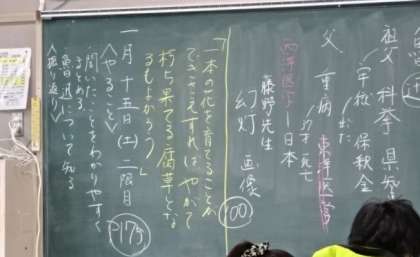 祖父 科挙 県知事
保釈金
父 重病 東洋医学
西洋医学ー日本
藤野先生
幻灯 画像
100
「一本の花を育てることが
できさえすればやがて
朽ち果てる腐草とな
るもよかろう」
一月十五日(土)二限目
P175
<やること>
聞いたことをわかりやすく
まとめる
魯迅について知る
<振り返り>